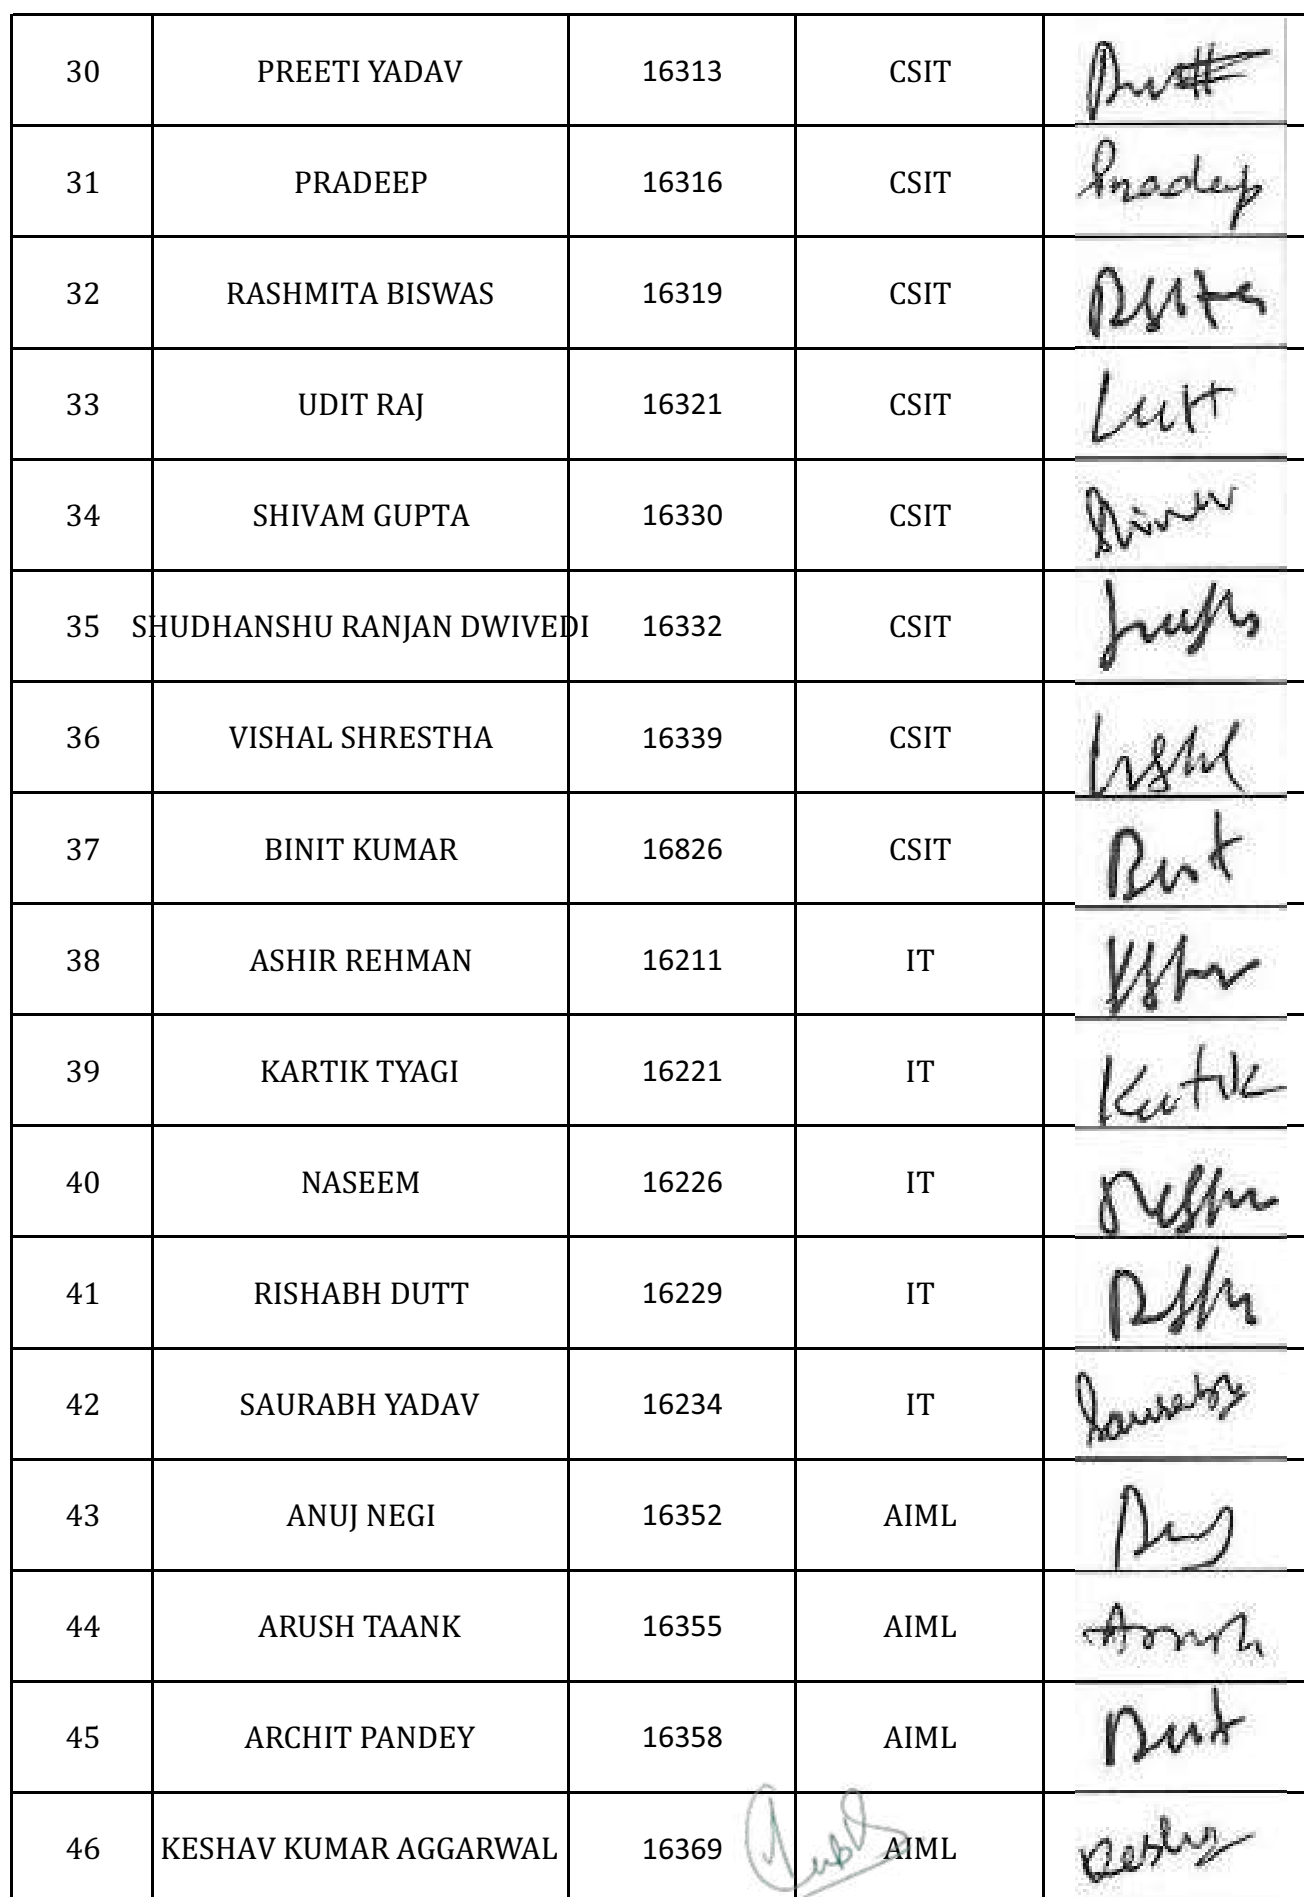 30 PREETI YADAV 16313 CSIT
31 PRADEEP 16316 CSIT Pradeep
32 RASHMITA BISWAS 16319 CSIT
33 UDIT RAJ 16321 CSIT
34 SHIVAM GUPTA 16330 CSIT
35 SHUDHANSHU RANJAN DWIVEDI 16332 CSIT
36 VISHAL SHRESTHA 16339 CSIT
37 BINIT KUMAR 16826 CSIT
38 ASHIR REHMAN 16211 IT
39 KARTIK TYAGI 16221 IT Kartik
40 NASEEM 16226 IT
41 RISHABH DUTT 16229 IT
42 SAURABH YADAV 16234 IT
43 ANUJ NEGI 16352 AIML
44 ARUSH TAANK 16355 AIML
45 ARCHIT PANDEY 16358 AIML
46 KESHAV KUMAR AGGARWAL 16369 AIML